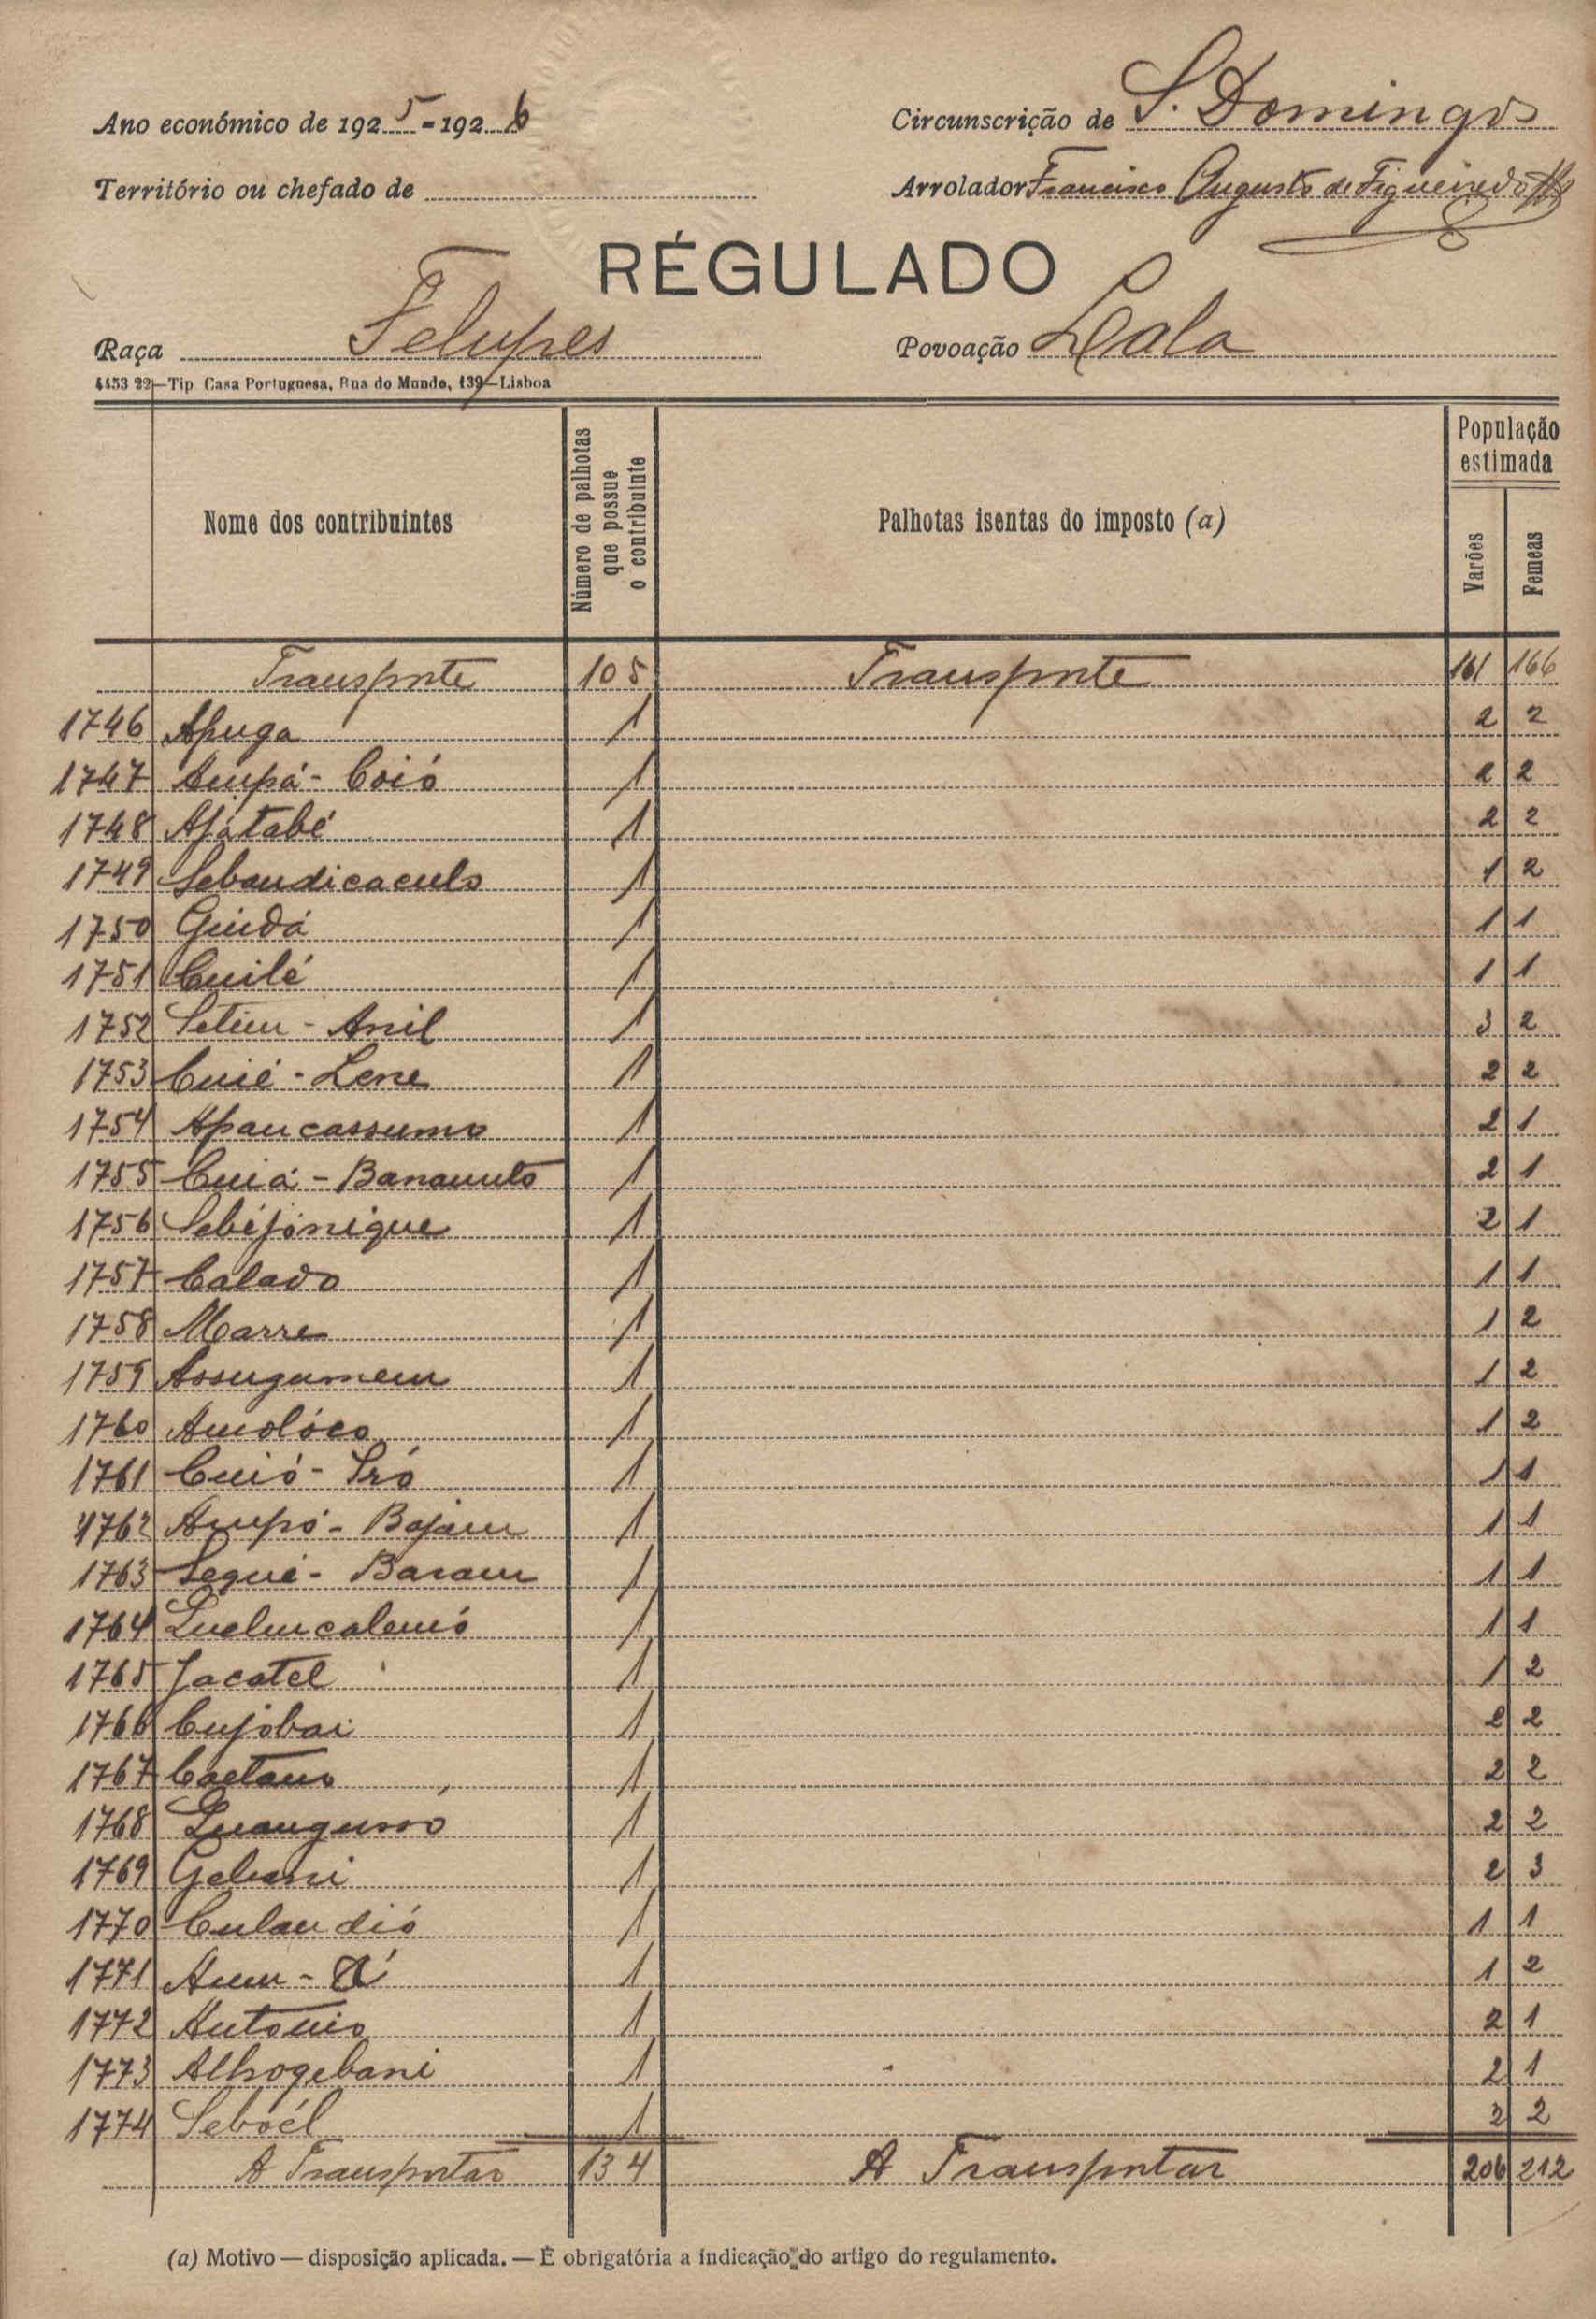 Ano económico de 1925-1926
Circunscrição de S. Domingos
Território ou chefado de
Arrolador Francisco Augusto de Figueiredo
RÉGULADO
Raça Felupes
Povoação Lala
4453 22—Tip Casa Portuguesa, Rua do Mundo, 139—Lisboa
Nome dos contribuintes
Número de palhotas que possue o contribuinte
Palhotas isentas do imposto (a)
População estimada
Varões
Femeas
Transporte 105 Transporte 161 166
1746 Apuga 1 2 2
1747 Ampá - Coió 1 2 2
1748 Ajátabé 1 2 2
1749 Sebandicaculo 1 1 2
1750 Guidá 1 1 1
1751 Cuilé 1 1 1
1752 Setim - Anil 1 3 2
1753 Cuié - Lene 1 2 2
1754 Apaucassumo 1 2 1
1755 Cuiá - Banamuto 1 2 1
1756 Sebéjónique 1 2 1
1757 Calado 1 1 1
1758 Marre 1 1 2
1759 Assugumem 1 1 2
1760 Amolóco 1 1 2
1761 Cuió - Sró 1 1 1
1762 Ampó - Bajam 1 1 1
1763 Segué - Baram 1 1 1
1764 1 1 1
1765 Jacatel 1 1 2
1766 Cujobai 1 2 2
1767 Caetano 1 2 2
1768 1 2 2
1769 Gebani 1 2 3
1770 Culandió 1 1 1
1771 1 1 2
1772 Antonio 1 2 1
1773 Alhogebani 1 2 1
1774 Seboél 1 2 2
A Transportar 134 A Transportar 206 212
(a) Motivo — disposição aplicada. — É obrigatória a indicação do artigo do regulamento.